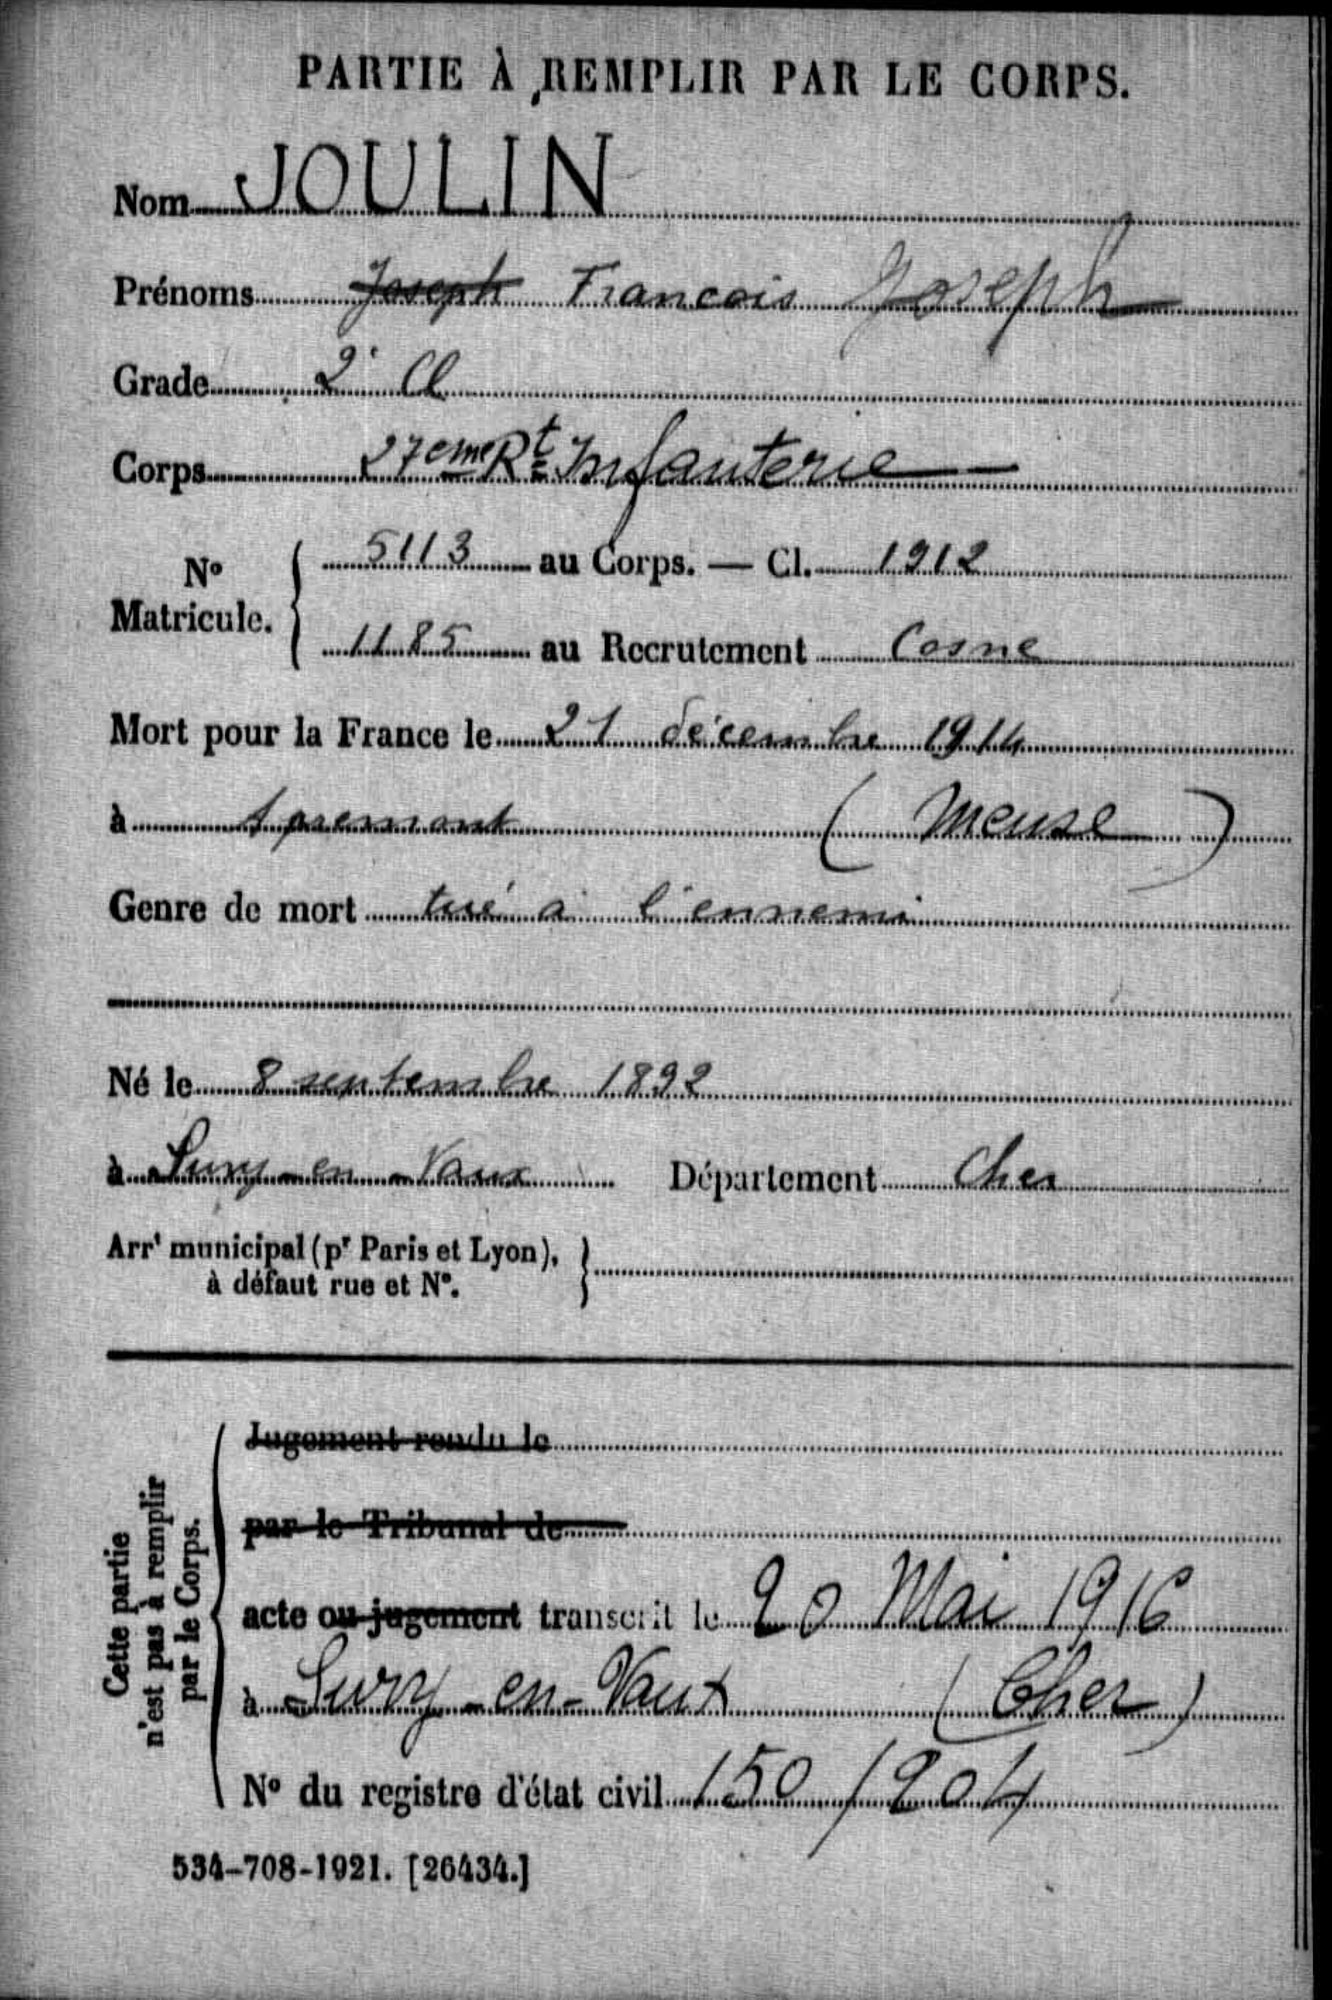 PARTIE À REMPLIR PAR LE CORPS.
Nom JOULIN
Prénoms Joseph Francois Joseph
Grade 2e Cl
Corps 27eme Rt Infanterie
No Matricule. { 5113 au Corps. — Cl. 1912
1185 au Recrutement Cosne
Mort pour la France le 21 décembre 1914
à Apremont (Meuse)
Genre de mort tué a l'ennemi
Né le 8 septembre 1892
à Sury-en-Vaux Département Cher
Arrt municipal (pr Paris et Lyon), à défaut rue et No. }
Cette partie n'est pas à remplir par le Corps.
Jugement rendu le
par le Tribunal de
acte ou jugement transcrit le 20 Mai 1916
à Sury-en-Vaux (Cher)
No du registre d'état civil 150/204
534-708-1921. [26434.]